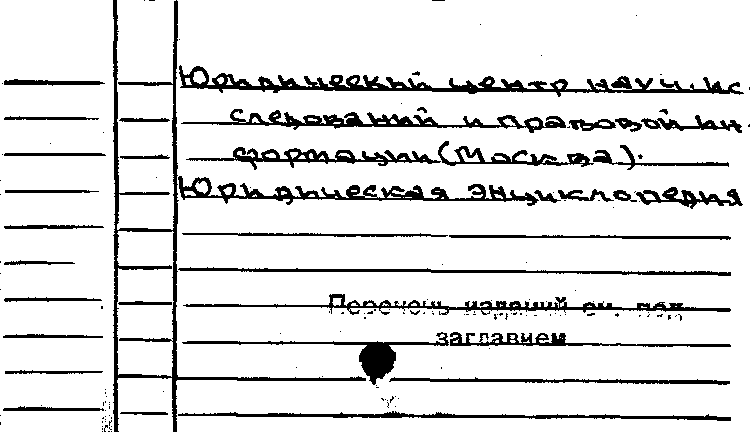 Юридический центр науч. ис-
следований и правовой ин-
формации (Москва).
Юридическая энциклопедия
Перечень изданий см. под
заглавием